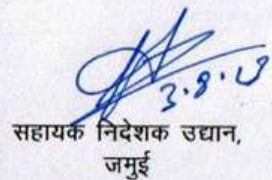 3.8.23
सहायक निदेशक उद्यान,
जमुई